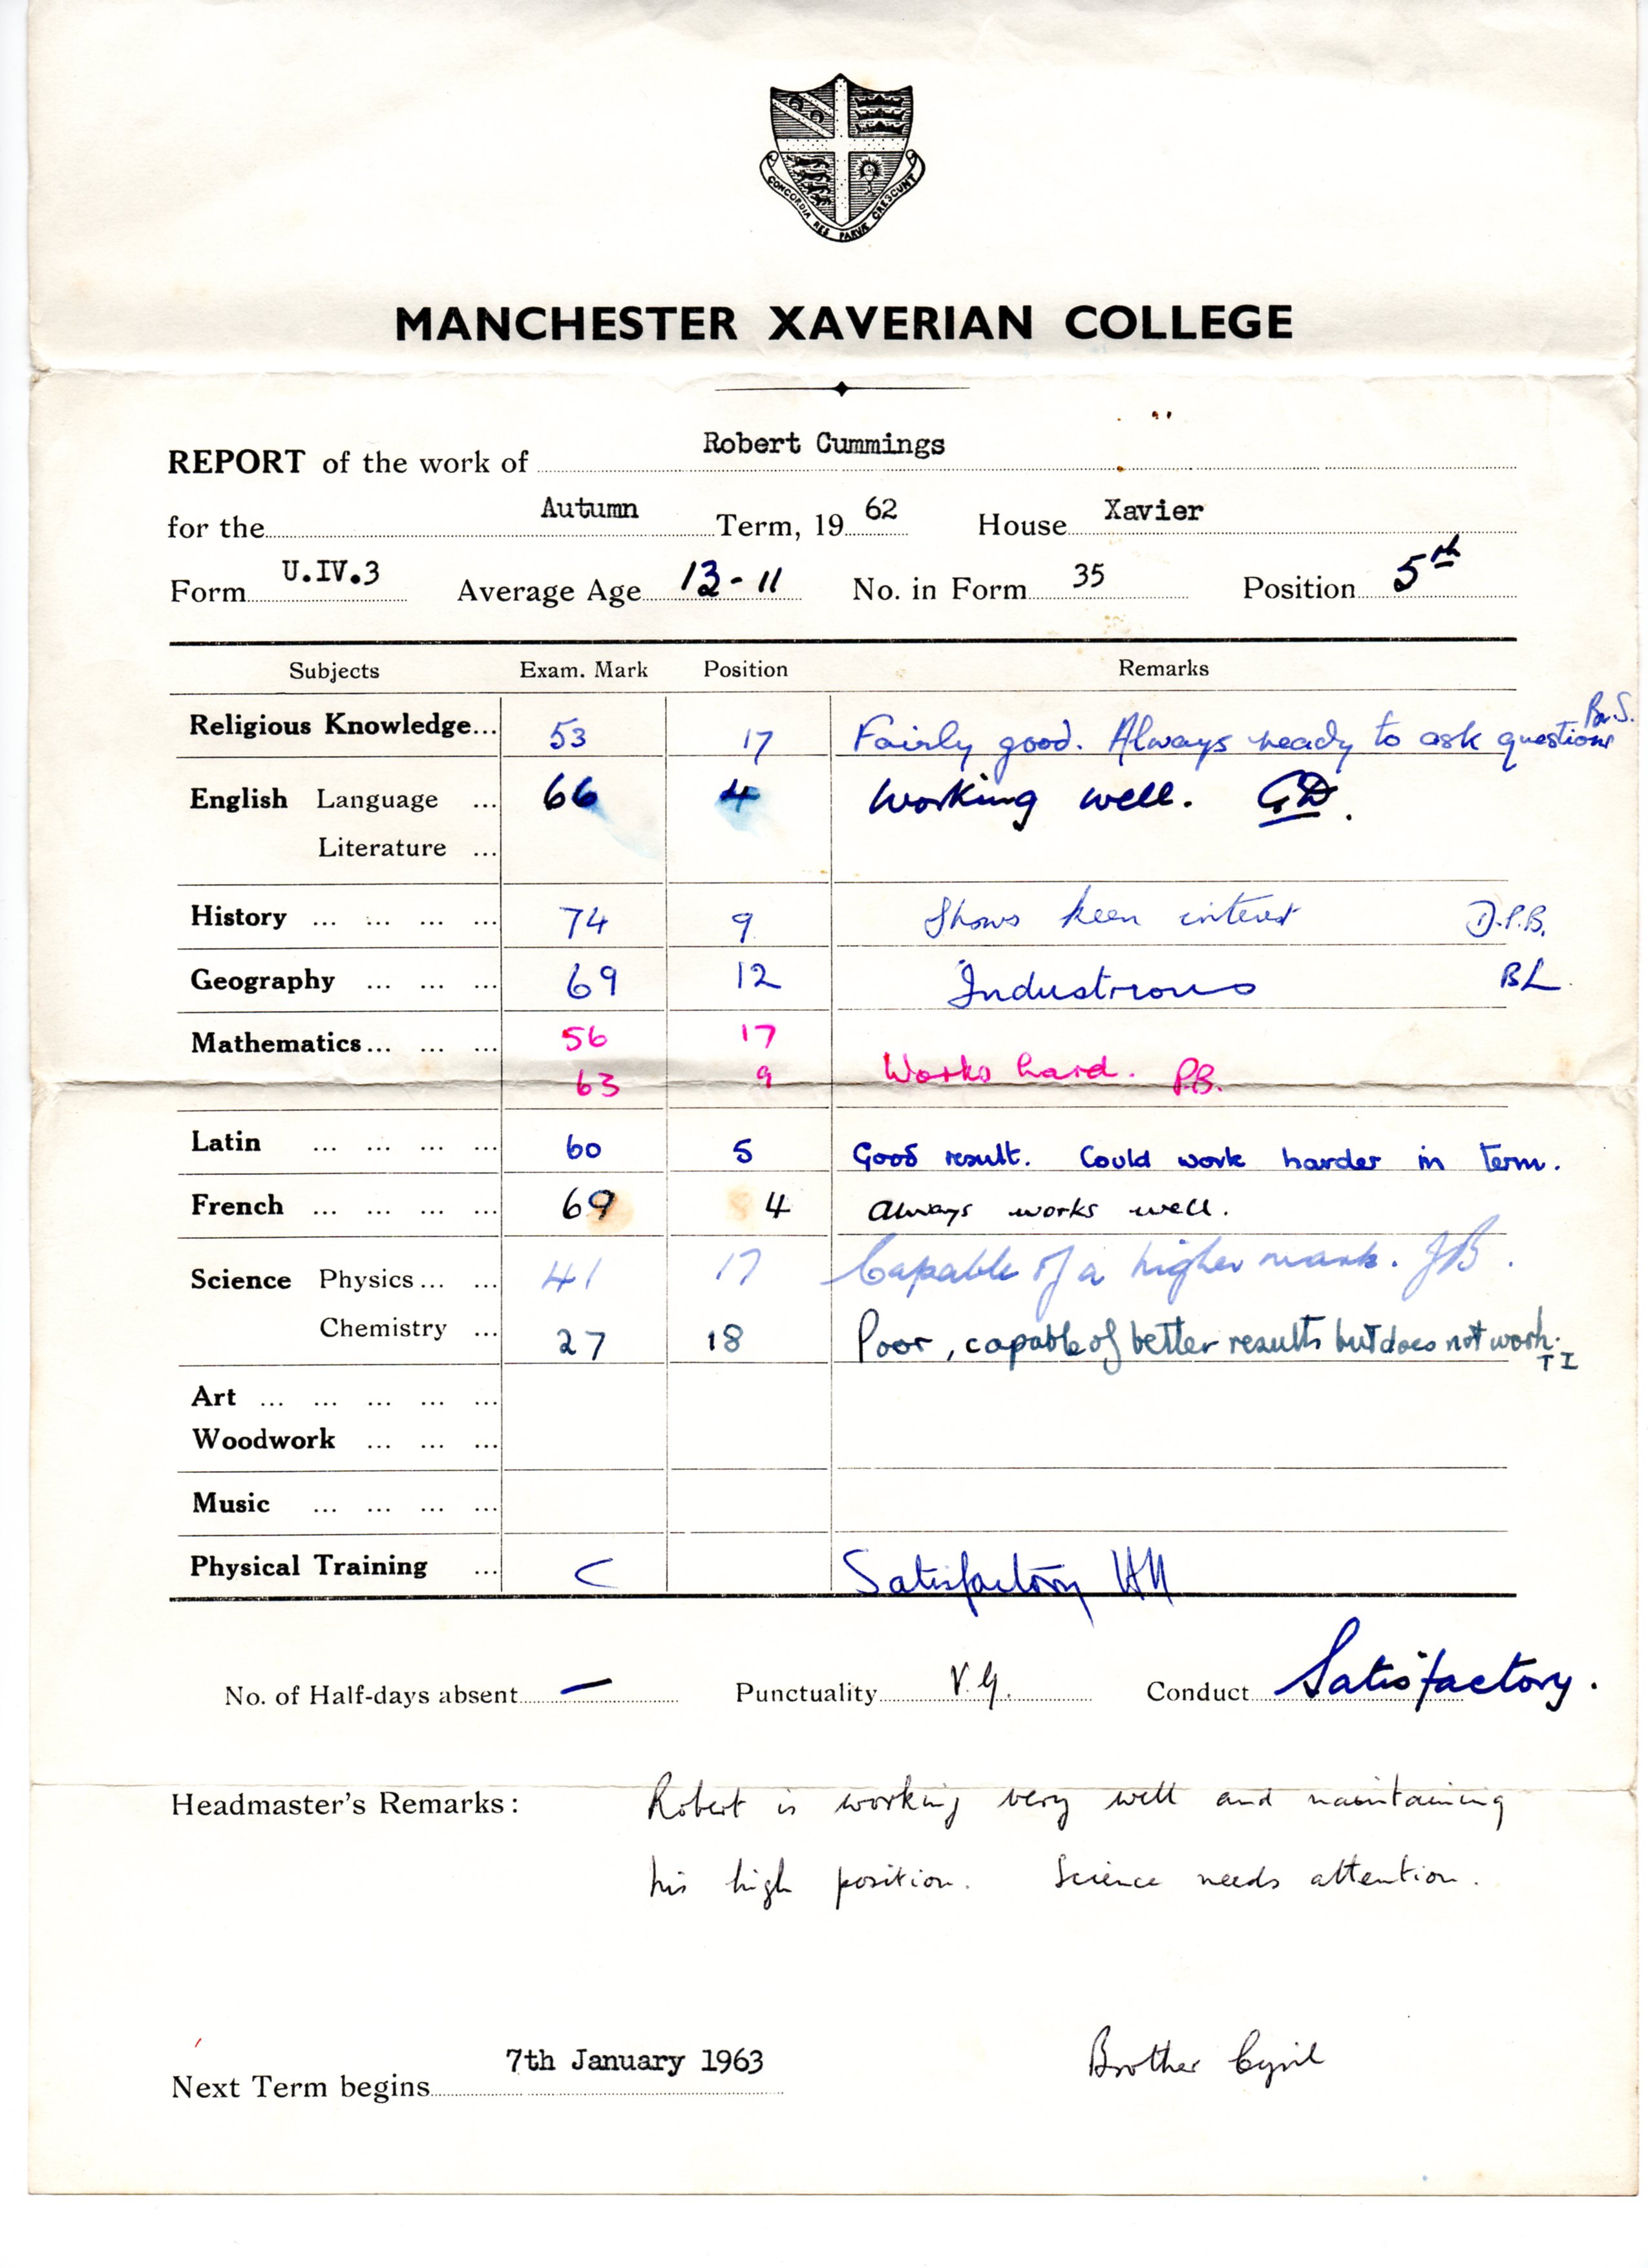 CONCORDIA RES PARVÆ CRESCUNT
MANCHESTER XAVERIAN COLLEGE
REPORT of the work of Robert Cummings
for the Autumn Term, 1962 House Xavier
Form U.IV.3 Average Age 13-11 No. in Form 35 Position 5th
Subjects Exam. Mark Position Remarks
Religious Knowledge... 53 17 Fairly good. Always ready to ask questions Br.S.
English Language ... 66 4 Working well. GD.
Literature ...
History ... ... ... ... 74 9 Shows keen interest D.P.B.
Geography ... ... ... 69 12 Industrious BL
Mathematics... ... ... 56 17
63 9 Works hard. P.B.
Latin ... ... ... ... 60 5 Good result. Could work harder in term.
French ... ... ... ... 69 4 Always works well.
Science Physics... ... 41 17 Capable of a higher mark. JB.
Chemistry ... 27 18 Poor, capable of better results but does not work. TI
Art ... ... ... ... ...
Woodwork ... ... ...
Music ... ... ... ...
Physical Training ... C Satisfactory
No. of Half-days absent — Punctuality V.G. Conduct Satisfactory.
Headmaster's Remarks: Robert is working very well and maintaining
his high position. Science needs attention.
Next Term begins 7th January 1963 Brother Cyril